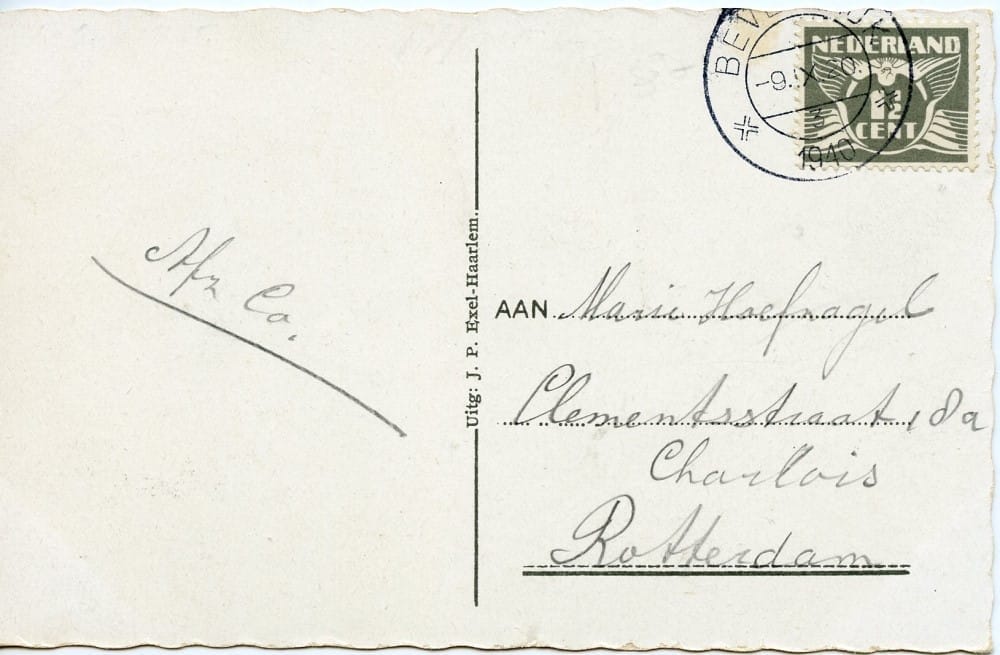 BEVERWIJK
-9.IX.20
3
1940
NEDERLAND
1½
CENT
Afz Co.
Uitg: J. P. Exel-Haarlem.
AAN Marie Hoefnagel
Clementsstraat, 8a
Charlois
Rotterdam